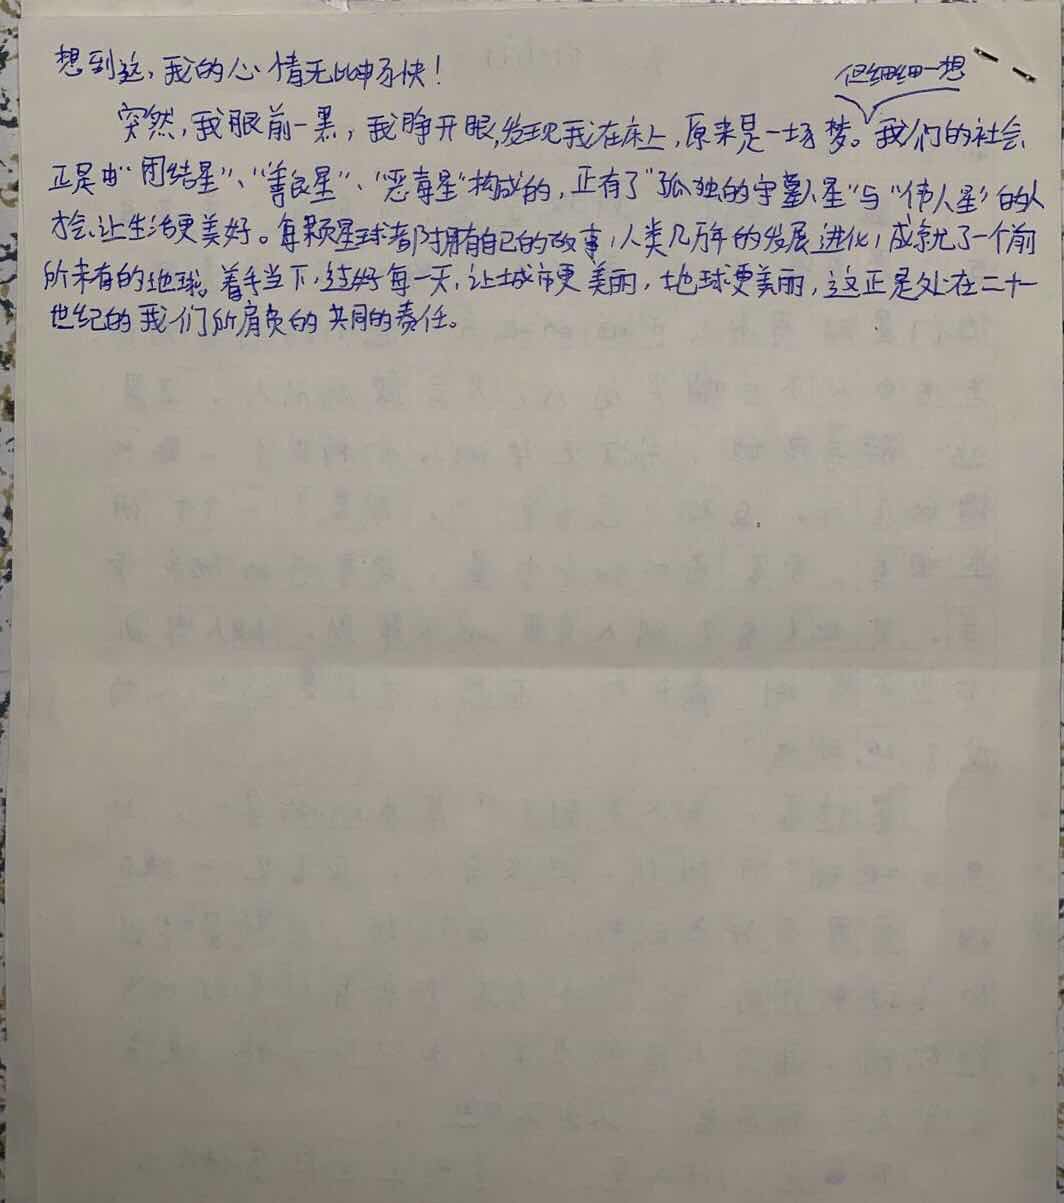 想到这，我的心情无比畅快！
但细细一想
突然，我眼前一黑，我睁开眼，发现我在床上，原来是一场梦。我们的社会
正是由“团结星”、“善良星”、“恶毒星”构成的，正有了“孤独的守墓人星”与“伟人星”的人
才会让生活更美好。每颗星球都拥有自己的故事，人类几万年的发展进化，成就了一个前
所未有的地球。着手当下，过好每一天，让城市更美丽，地球更美丽，这正是处在二十一
世纪的我们所肩负的共同的责任。